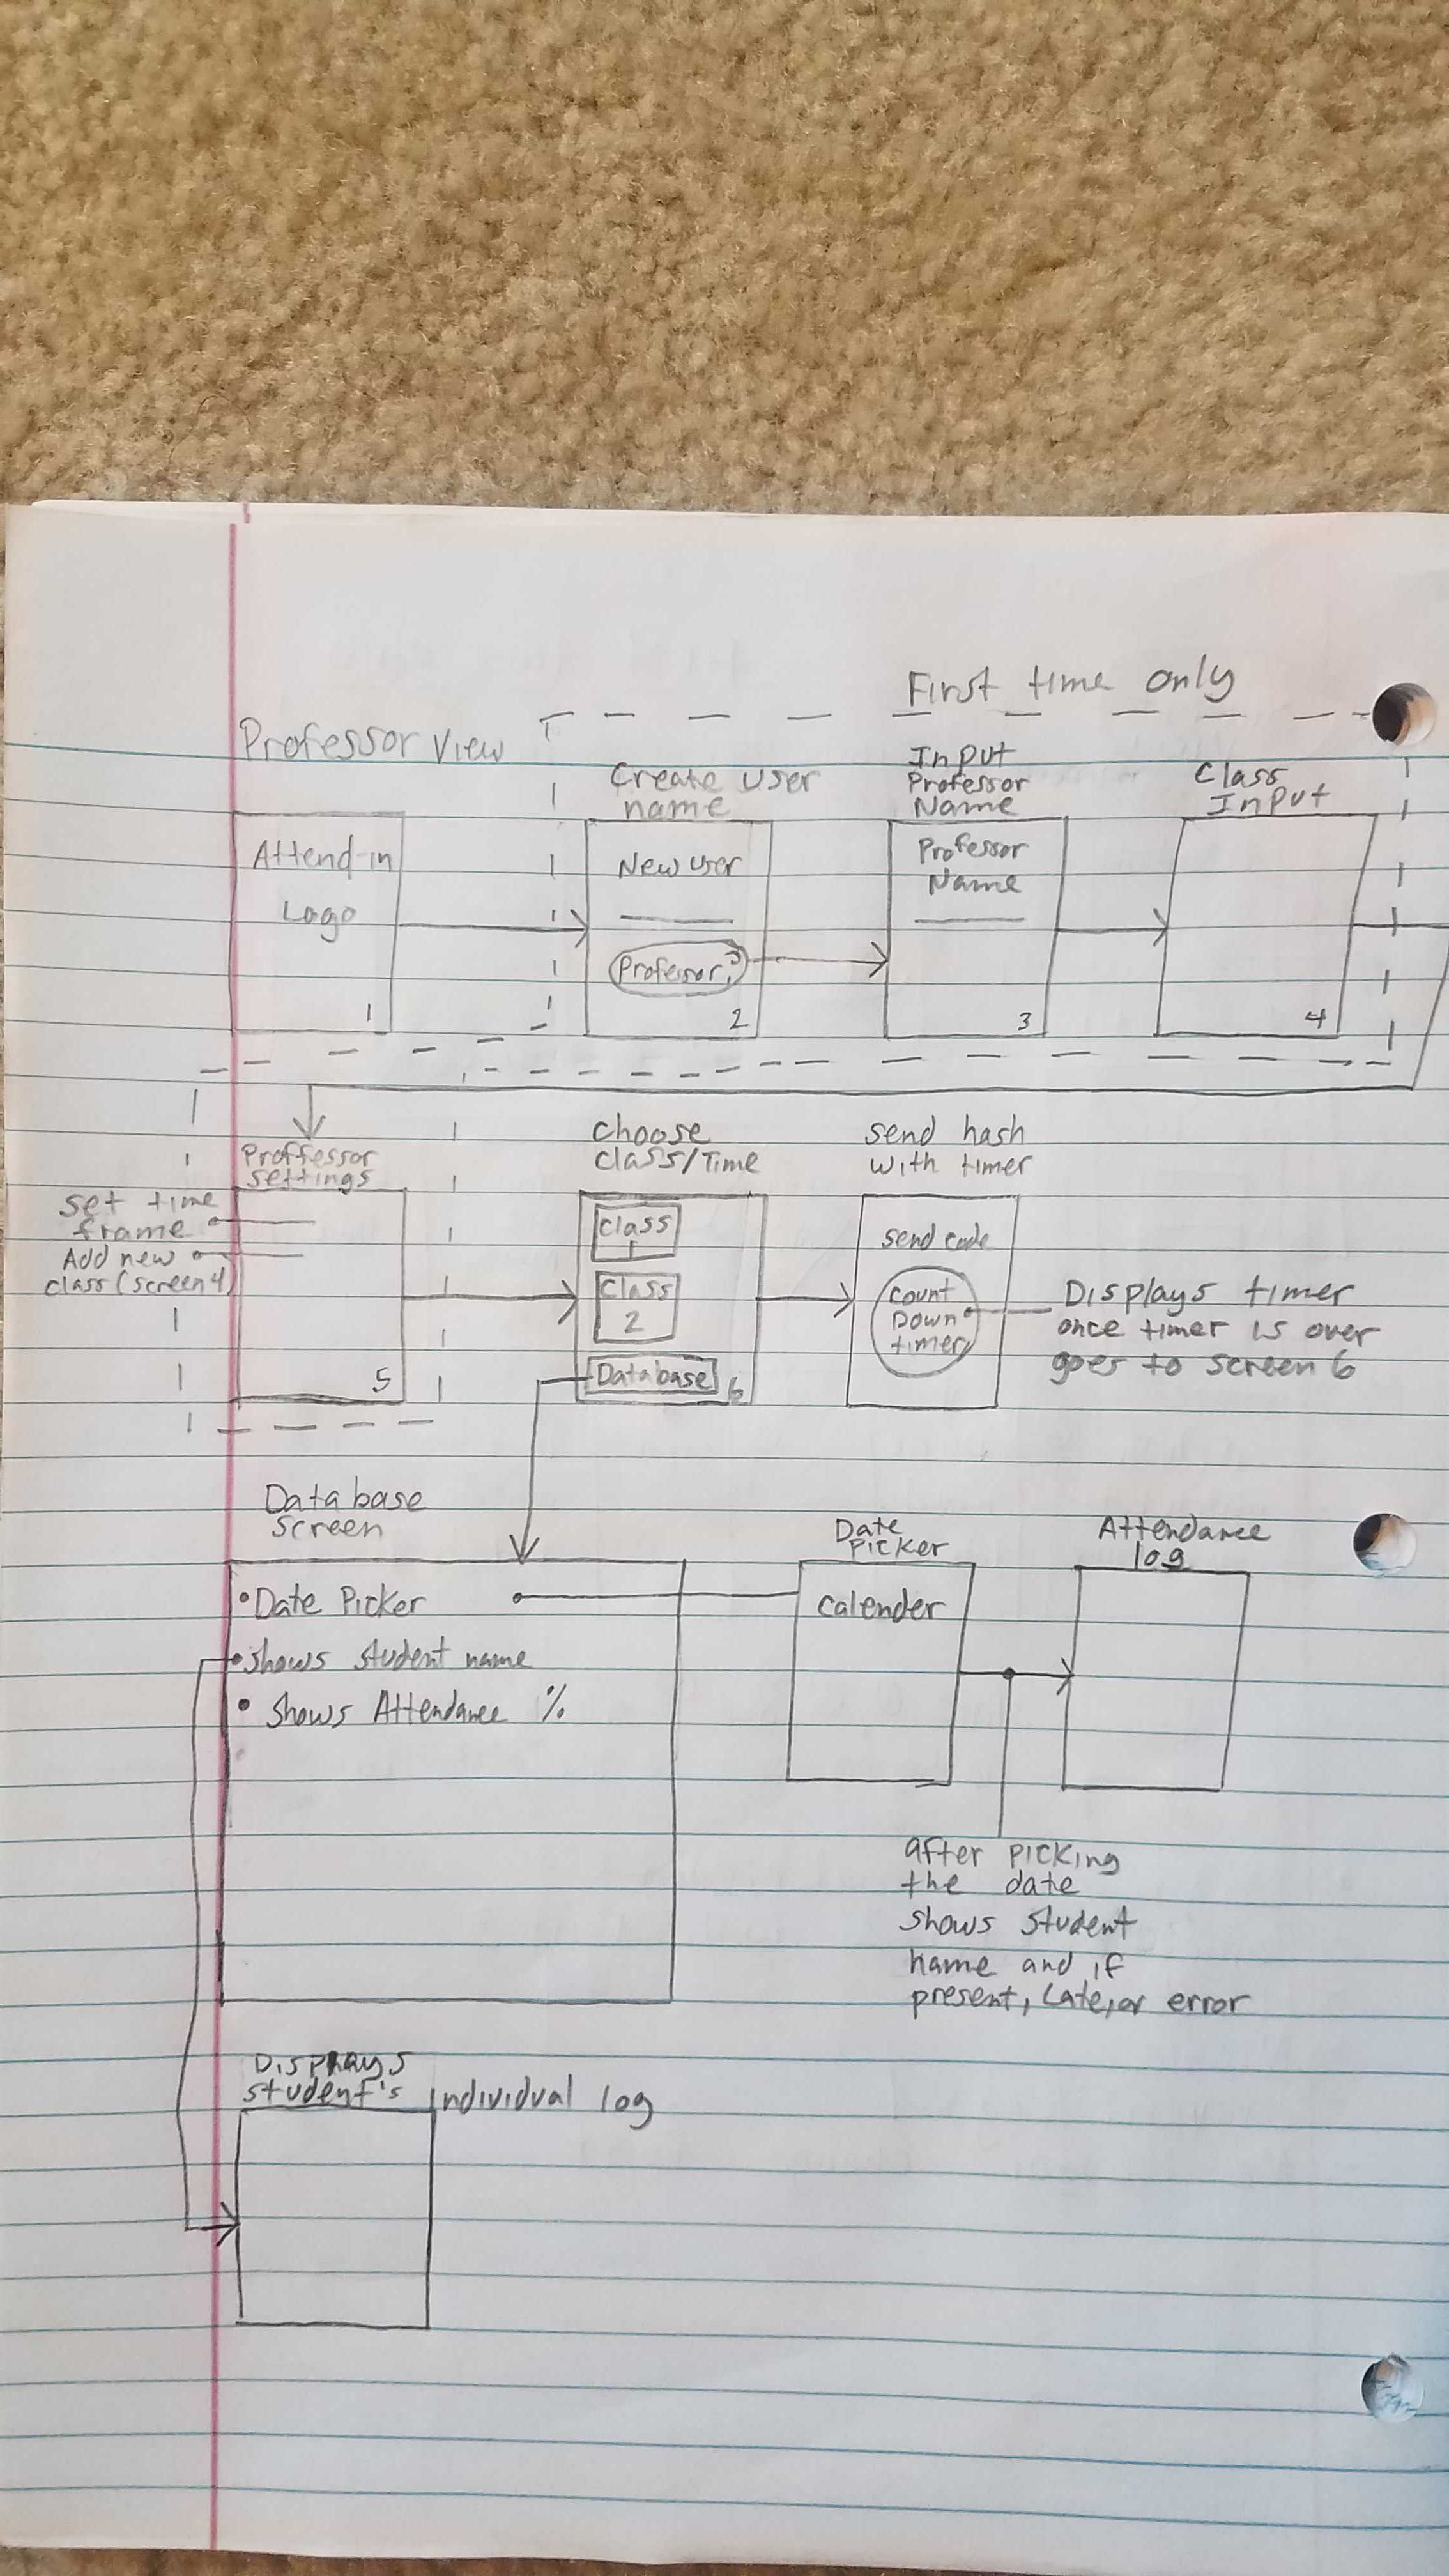 First time only
Professor View
Create User
name
Input
Professor
Name
Class
Input
Attend-in
Logo
1
New user
Professor?
2
Professor
Name
3
4
Proffessor
settings
set time
frame
Add new
class (screen 4)
5
choose
class/Time
class
1
Class
2
Database
6
send hash
with timer
send code
count
Down
timer
Displays timer
once timer is over
goes to screen 6
Database
screen
• Date Picker
• shows student name
• Shows Attendance %
Date
Picker
calender
Attendance
log
after picking
the date
shows student
name and if
present, Late, or error
Displays
student's individual log